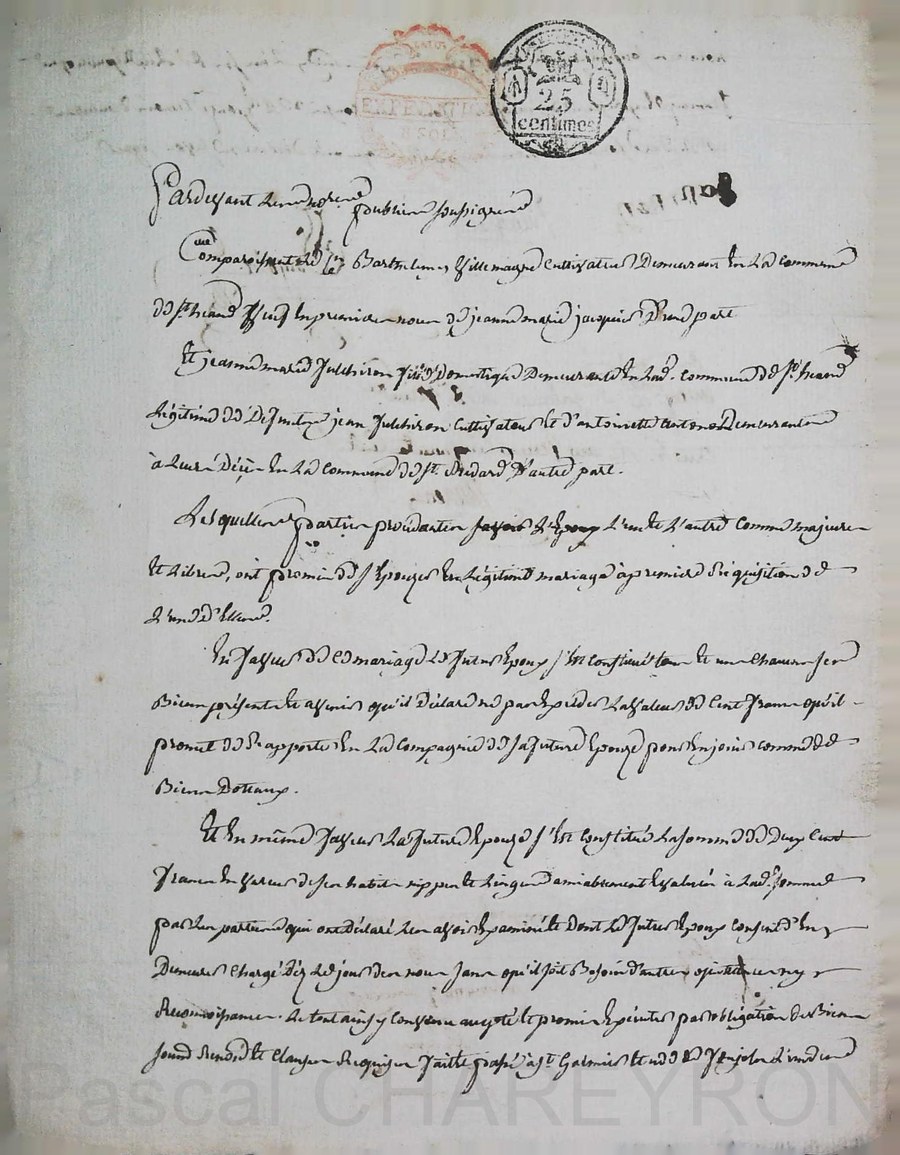 EXPEDITION
25
centimes
Pardevant les notaires publics soussignés
Comparoissent le Sr Barthelemy Villemagne cultivateur Demeurant En La Commune
de St heand Veuf En premiere noces de jeanne marie jacquier D'une part
Et jeanne marie fulchiron fille Domestique Demeurante En Lad. Commune de St heand
Légitime de Defunts jean fulchiron Cultivateur Et d'antoinette Demeurants
à Leurs Décès En La Commune de St Medard D'autre part.
Lesquelles parties procédantes L'un et L'autre Comme majeurs
Et Libres, ont promis de s'Epouzer En Légitime mariage à premiere Réquisition de
L'une d'Elles.
En faveur de Ce mariage Le futur Epoux s'Est Constitué tous Et un Chacuns ses
Biens présents Et avenirs qu'il Déclare ne pas Exceder La Valeur de Cent francs qu'il
promet de apporter En La Compagnie de sa future Epouze pour En jouir comme de
Biens Dottaux.
Et En même faveur La future Epouze s'Est Constitué La somme de Deux Cent
francs En Valeur de ses habits nippes Et Linges amiablement Evalués à Lad. somme
par Les parties qui ont Déclaré Les avoir Examiné Et Dont Le futur Epoux Consent d'En
Demeurer Chargé Dez Le jour des noces sans qu'il soit Besoin d'autre quittance ny
Reconnoissance. Le tout ainsy Convenu accepté Et promis Exécuter par obligation de Biens
soumis Renoncé Et Clauses Requises fait Et passé à St Galmier Etude de L'un d'eux
Pascal CHAREYRON